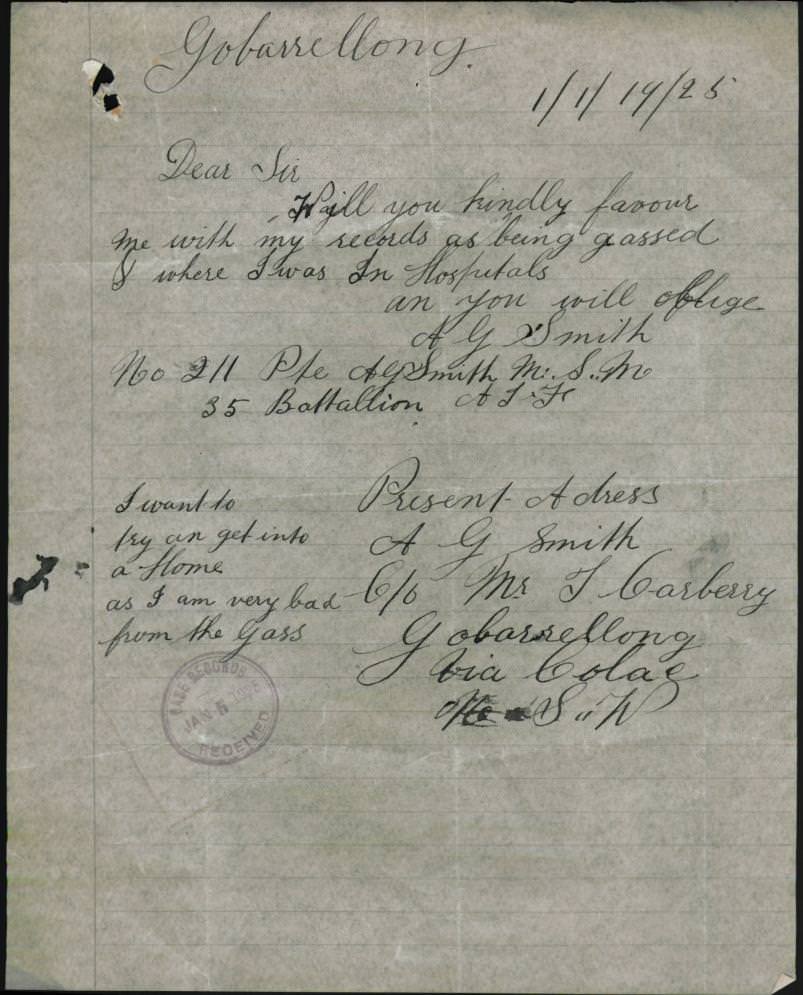 Gobarrellong.
1/1/19/25
Dear Sir
Will you kindly favour
me with my records as being gassed
& where I was In Hospitals
an you will oblige
A G Smith
No 211 Pte AG Smith M.S.M
35 Battallion A I F
Present Adress
A G Smith
C/o Mr T Carberry
Gobarrellong
Via Colac
N S W
I want to
try an get into
a Home
as I am very bad
from the Gass
BASE RECORDS
JAN 5 1925
RECEIVED